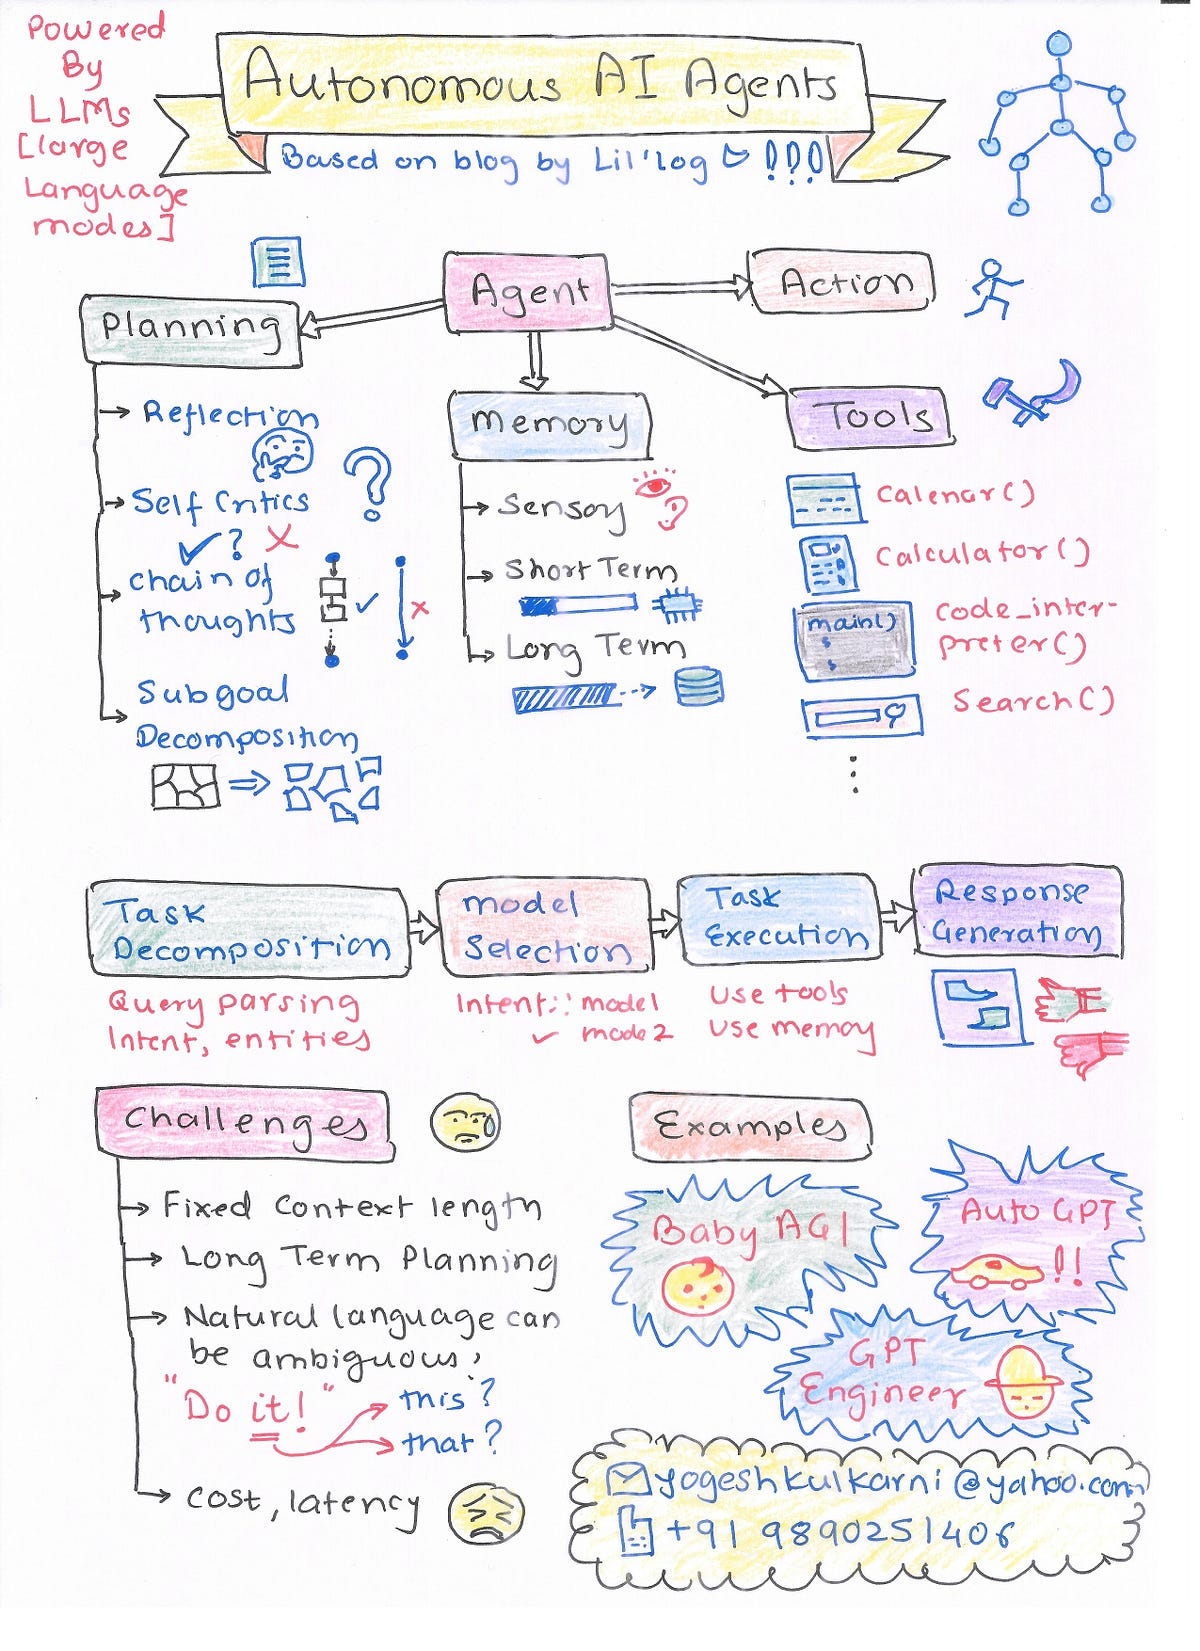 Powered
By
LLMs
[large
Language
modes]
Autonomous AI Agents
Based on blog by Lil'log !!!
Agent
Action
Planning
Memory
Tools
Reflection
Self Critics
?
chain of
thoughts
Subgoal
Decomposition
Sensoy
Short Term
Long Term
Calenar()
Calculator()
main()
code_inter-
preter()
Search()
Task
Decomposition
Model
Selection
Task
Execution
Response
Generation
Query parsing
Intent, entities
Intent:: model
mode2
Use tools
Use memoy
Challenges
Fixed Context length
Long Term Planning
Natural language can
be ambiguous,
"Do it!"
this?
that?
cost, latency
Examples
Baby AGI
Auto GPT
!!
GPT
Engineer
yogeshkulkarni@yahoo.com
+91 9890251406